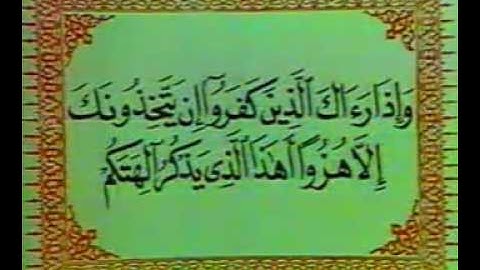 وَإِذَا رَءَاكَ ٱلَّذِينَ كَفَرُوٓا۟ إِن يَتَّخِذُونَكَ
إِلَّا هُزُوًا أَهَٰذَا ٱلَّذِى يَذْكُرُ ءَالِهَتَكُمْ